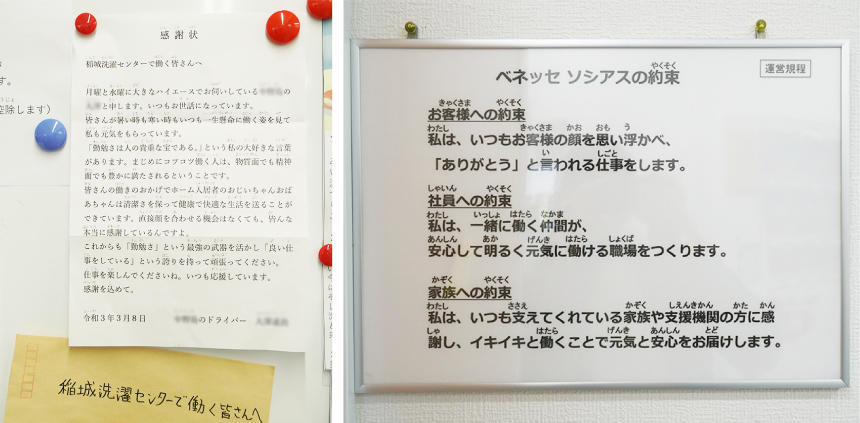 す。
控除します）
感謝状
稲城洗濯センターで働く皆さんへ
月曜と水曜に大きなハイエースでお伺いしている
と申します。いつもお世話になっています。
皆さんが暑い時も寒い時もいつも一生懸命に働く姿を見て
私も元気をもらっています。
「勤勉さは人の貴重な宝である。」という私の大好きな言葉
があります。まじめにコツコツ働く人は、物質面でも精神
面でも豊かに満たされるということです。
皆さんの働きのおかげでホーム入居者のおじいちゃんおば
あちゃんは清潔さを保って健康で快適な生活を送ることが
できています。直接顔を合わせる機会はなくても、皆んな
本当に感謝しているんですよ。
これからも「勤勉さ」という最強の武器を活かし「良い仕
事をしている」という誇りを持って頑張ってください。
仕事を楽しんでくださいね。いつも応援しています。
感謝を込めて。
令和３年３月８日
のドライバー
稲城洗濯センターで働く皆さんへ
ベネッセ ソシアスの約束
運営規程
お客様への約束
私は、いつもお客様の顔を思い浮かべ、
「ありがとう」と言われる仕事をします。
社員への約束
私は、一緒に働く仲間が、
安心して明るく元気に働ける職場をつくります。
家族への約束
私は、いつも支えてくれている家族や支援機関の方に感
謝し、イキイキと働くことで元気と安心をお届けします。